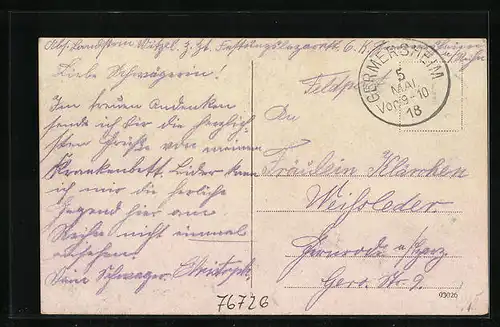 Abs. Landstrm Witzel. z. Zt. Festungslazarett 6. K.
Liebe Schwägerin!
Zum treuen Andenken
sende ich Dir die herzlich-
sten Grüße von meinem
Krankenbett. Leider kann
ich mir die herliche
Gegend hier am
Rheine nicht einmal
ansehen.
Dein Schwager Christoph.
76726
GERMERSHEIM
5
MAI
Vor. 9-10
18
Feldpost
An
Fräulein Klärchen
Weißleder.
Gernrode a/Harz
03026